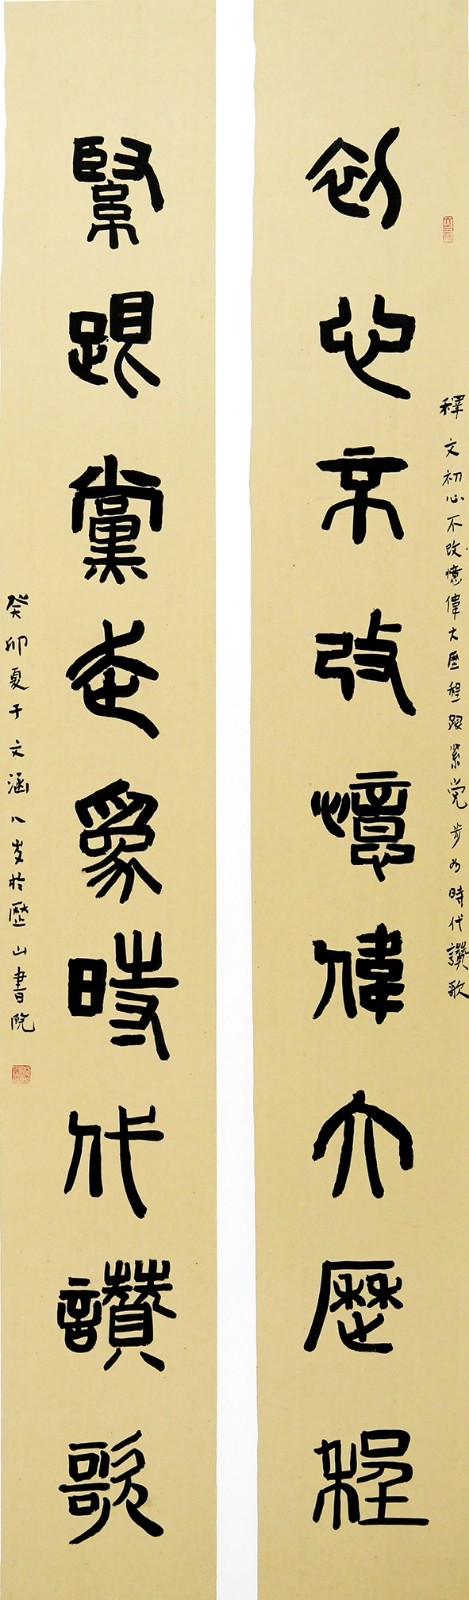 釋文初心不改憶偉大歷程跟緊党步为時代讚歌
初心不改憶偉大歷程
緊跟黨走為時代讚歌
癸卯夏于文涵八岁於歷山書院